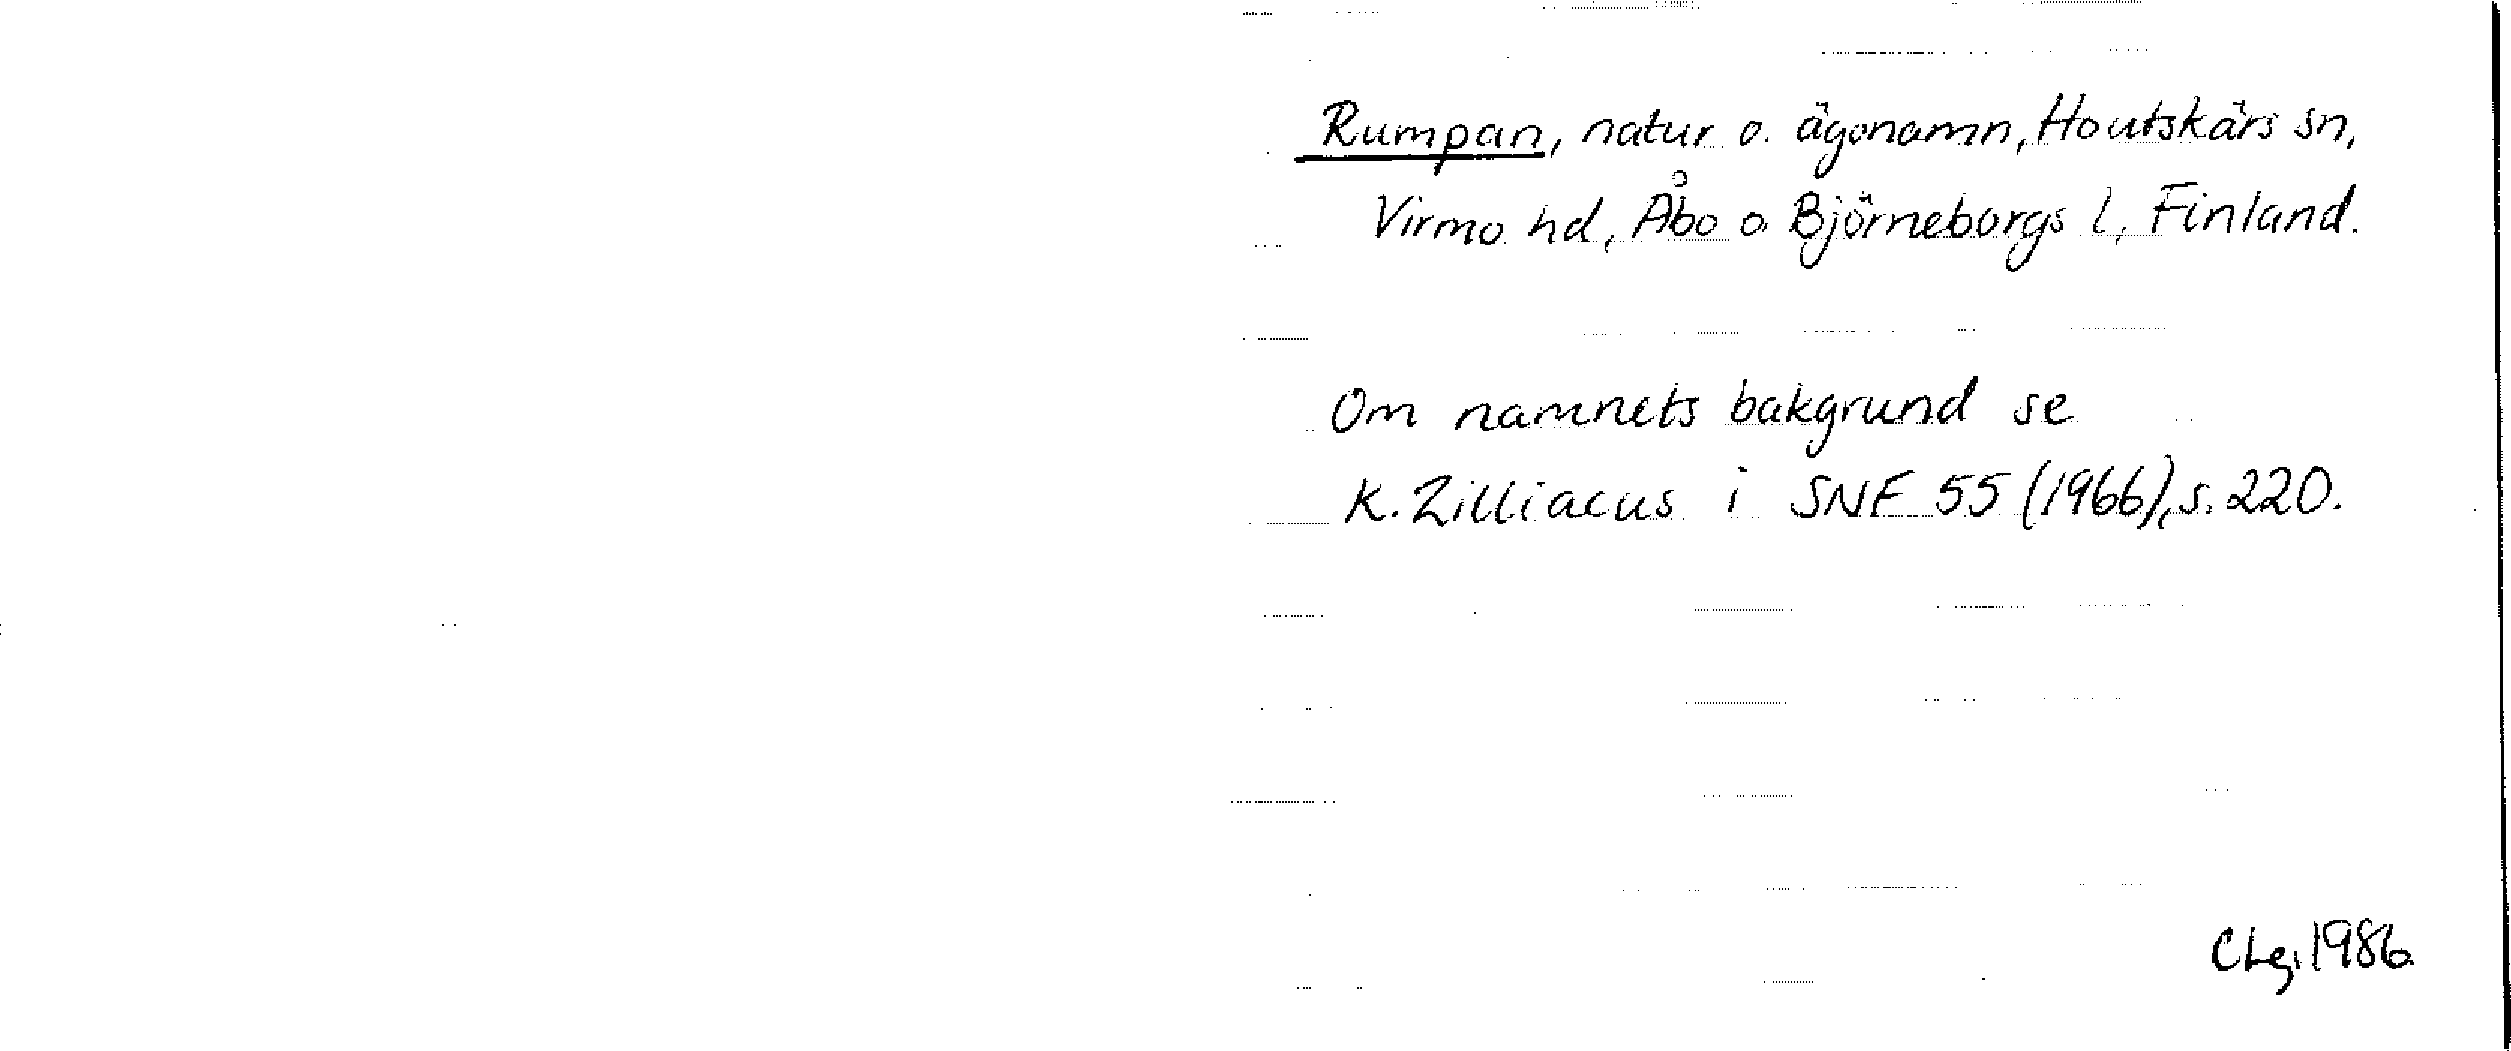 Rumpan, natur o. ägonamn, Houtskärs sn,
Virmo hd, Åbo o. Björneborgs l, Finland.
Om namnets bakgrund se
K. Zilliacus i SNF 55 (1966), s. 220.
CLg. 1986